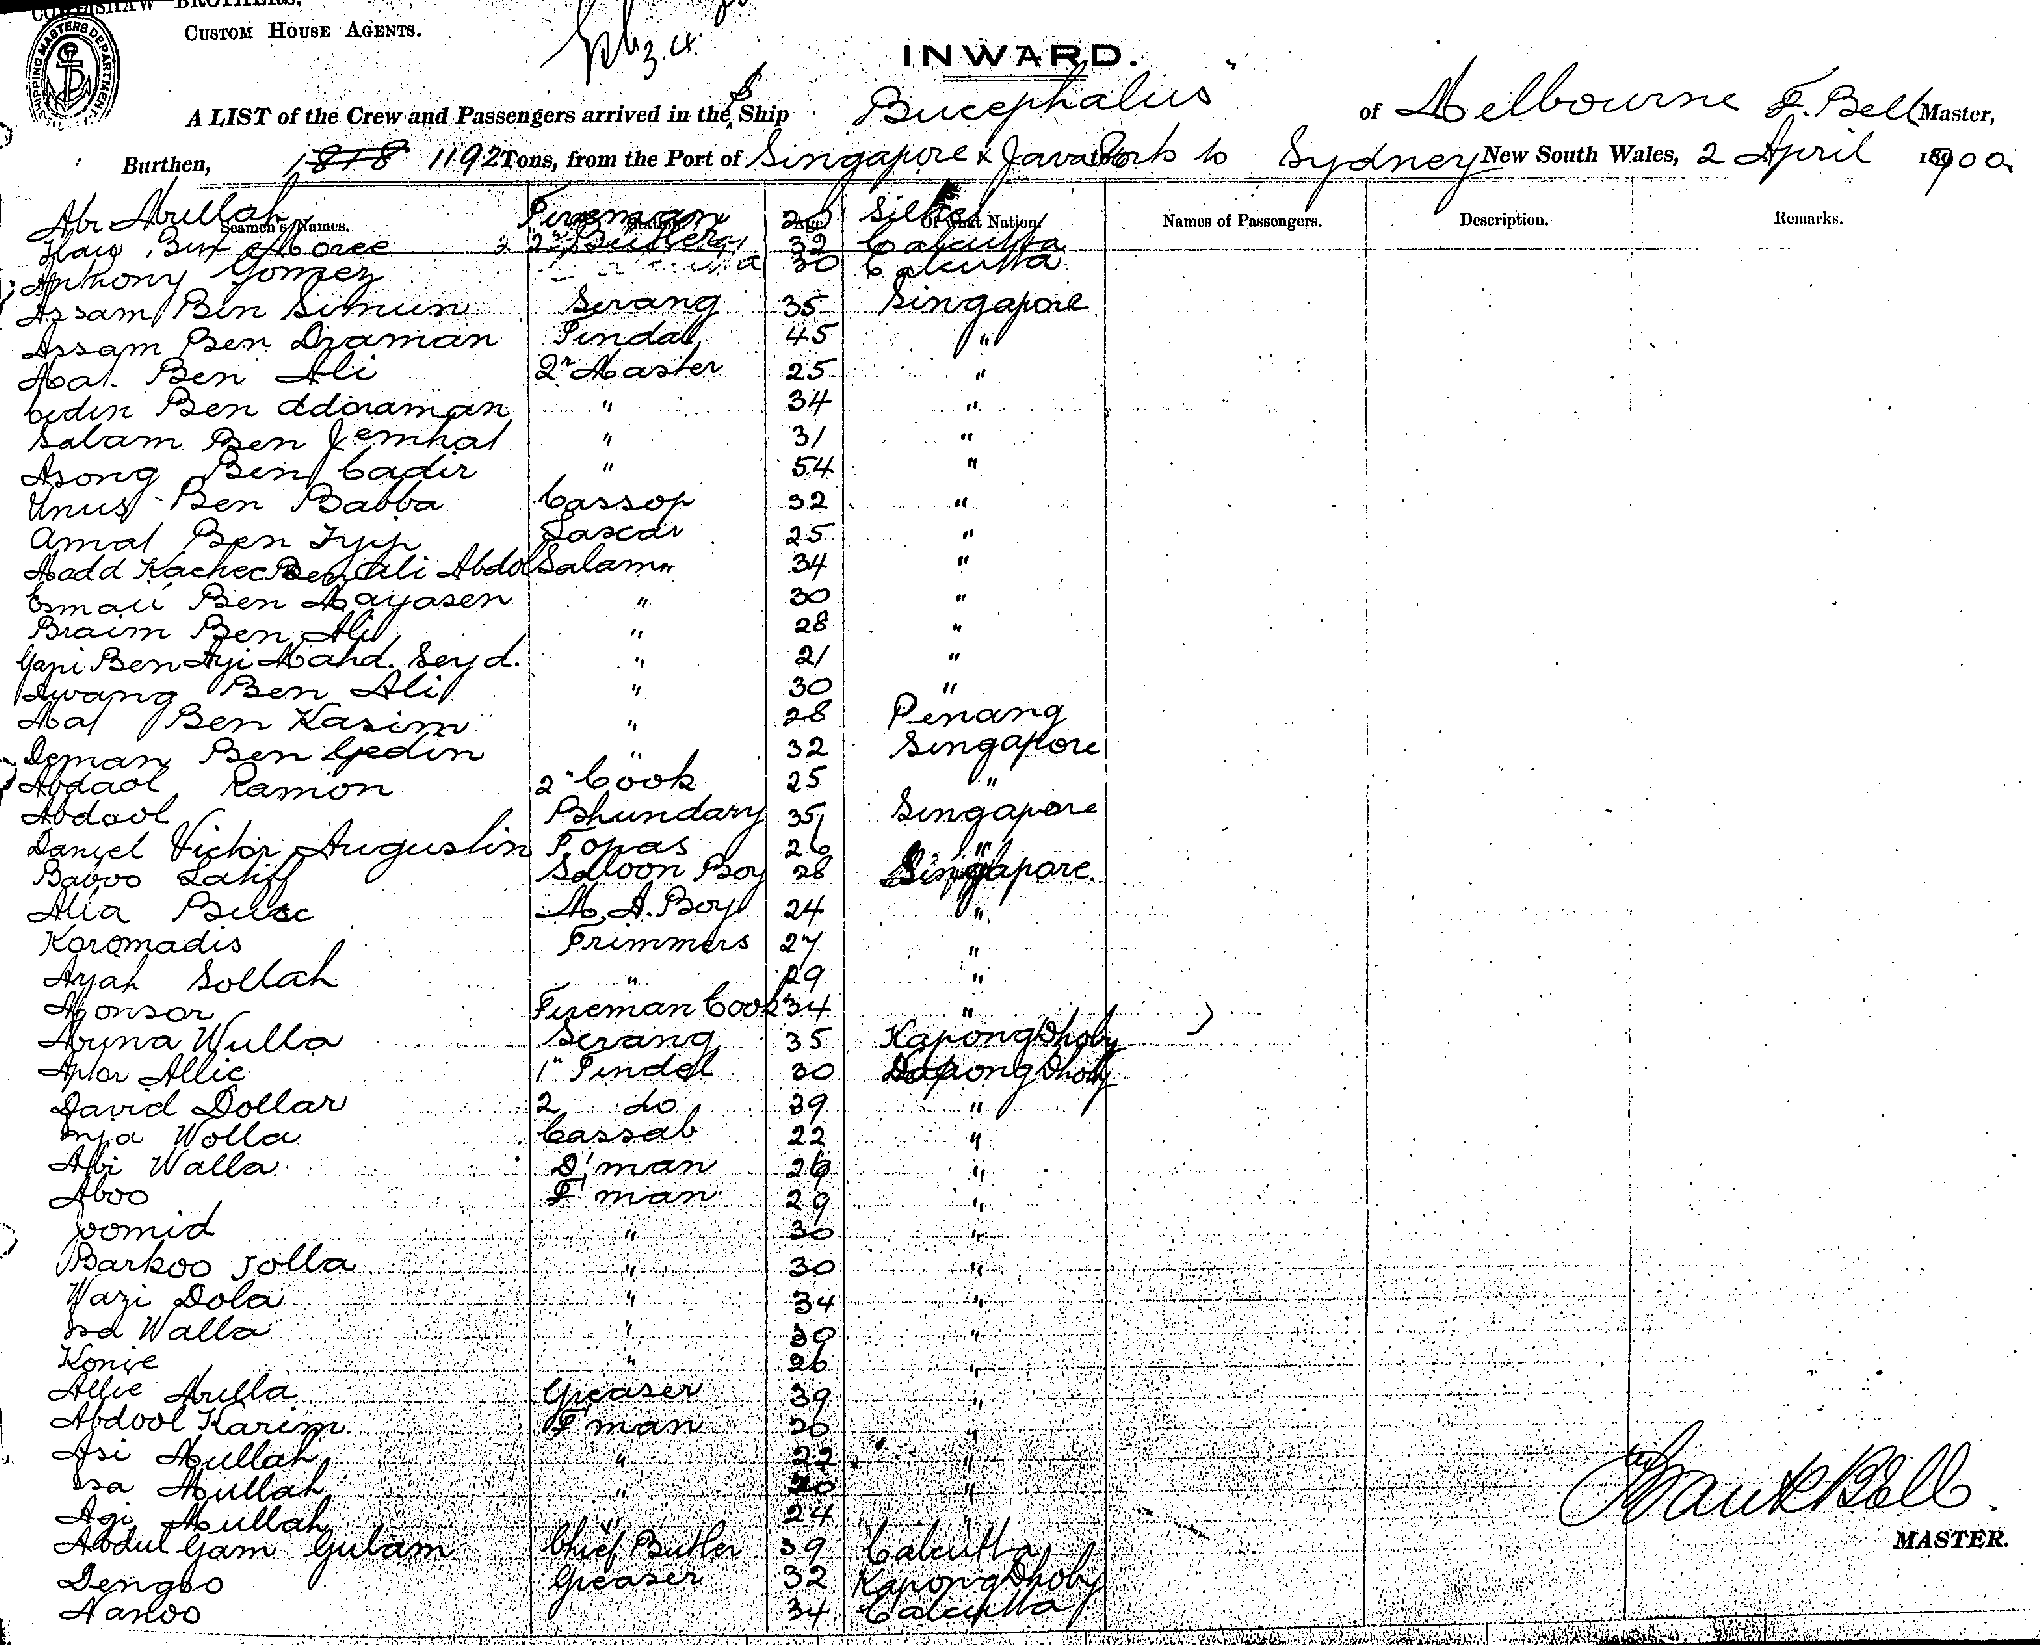 BROTHERS,
CUSTOM HOUSE AGENTS.
SHIPPING MASTERS DEPARTMENT
INWARD.
A LIST of the Crew and Passengers arrived in the S Ship Bucephalus of Melbourne F. Bell Master,
Burthen, 1818 1192 Tons, from the Port of Singapore & Java Ports to Sydney New South Wales, 2 April 1900
Seamen's Names. Station. Age. Of what Nation. Names of Passengers. Description. Remarks.
Fireman
2nd Butler 32 Calcutta
Anthony Gomez 30 Calcutta
Assam Ben Simun Serang 35 Singapore
Assam Ben Draman Tindal 45 "
Mat Ben Ali 2nd Master 25 "
Ben ddoraman " 34 "
Salam Ben Jemhat " 31 "
Asong Ben Cadir " 54 "
Unus Ben Babba Cassop 32 "
Amat Ben Lascar 25 "
Madd Kachec Ben Ali Abdol Salam " 34 "
Ben Mayasen " 30 "
Braim Ben Ali " 28 "
Gani Ben Aji Mahd. Seyd. " 21 "
Awang Ben Ali " 30 "
Mat Ben Kasim " 28 Penang
Deman Ben Gedin " 32 Singapore
Abdaol Ramon 2" Cook 25 "
Abdool Bhundary 35 Singapore
Danyel Victor Augustin Topas 26 "
Baboo Latiff Saloon Boy 28 Singapore.
Alla Buse M. A. Boy 24 "
Karomadis Trimmers 27 "
Ayah Sollah " 29 "
Monsor Fireman Cook 34 "
Wulla Serang 35 Kapong Dhoby
Allie 1" Tindal 30 Dapong Dhoby
David Dollar 2 do 39 "
Wolla Cassab 22 "
Abi Walla D'man 26 "
Aboo F'man 29 "
Joomid " 30 "
Barkoo Jolla " 30 "
Wazi Dola " 34 "
Isa Walla " 30 "
Konie " 26 "
Allie Mulla Greaser 39 "
Abdool Karim F'man 20 "
Asi Mullah " 22 "
Isa Mullah " "
Agi Mullah " 24 "
Abdul Gam Gulam Chief Butler 39 Calcutta
Dengoo Greaser 32 Kapong Dhoby
Nanoo 34 Calcutta
Frank Bell
MASTER.